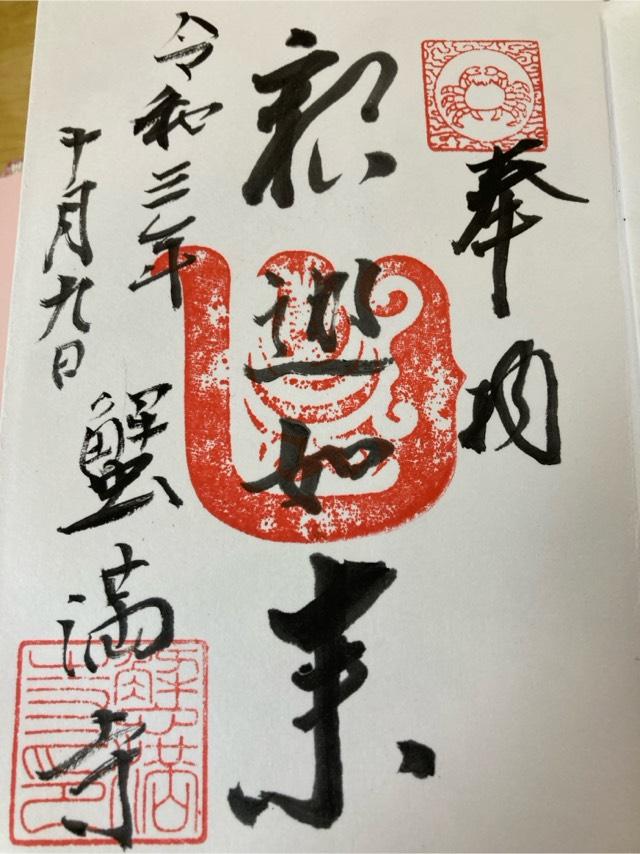 奉拝
釈迦如来
令和三年
十月九日
蟹満寺
蟹満寺印